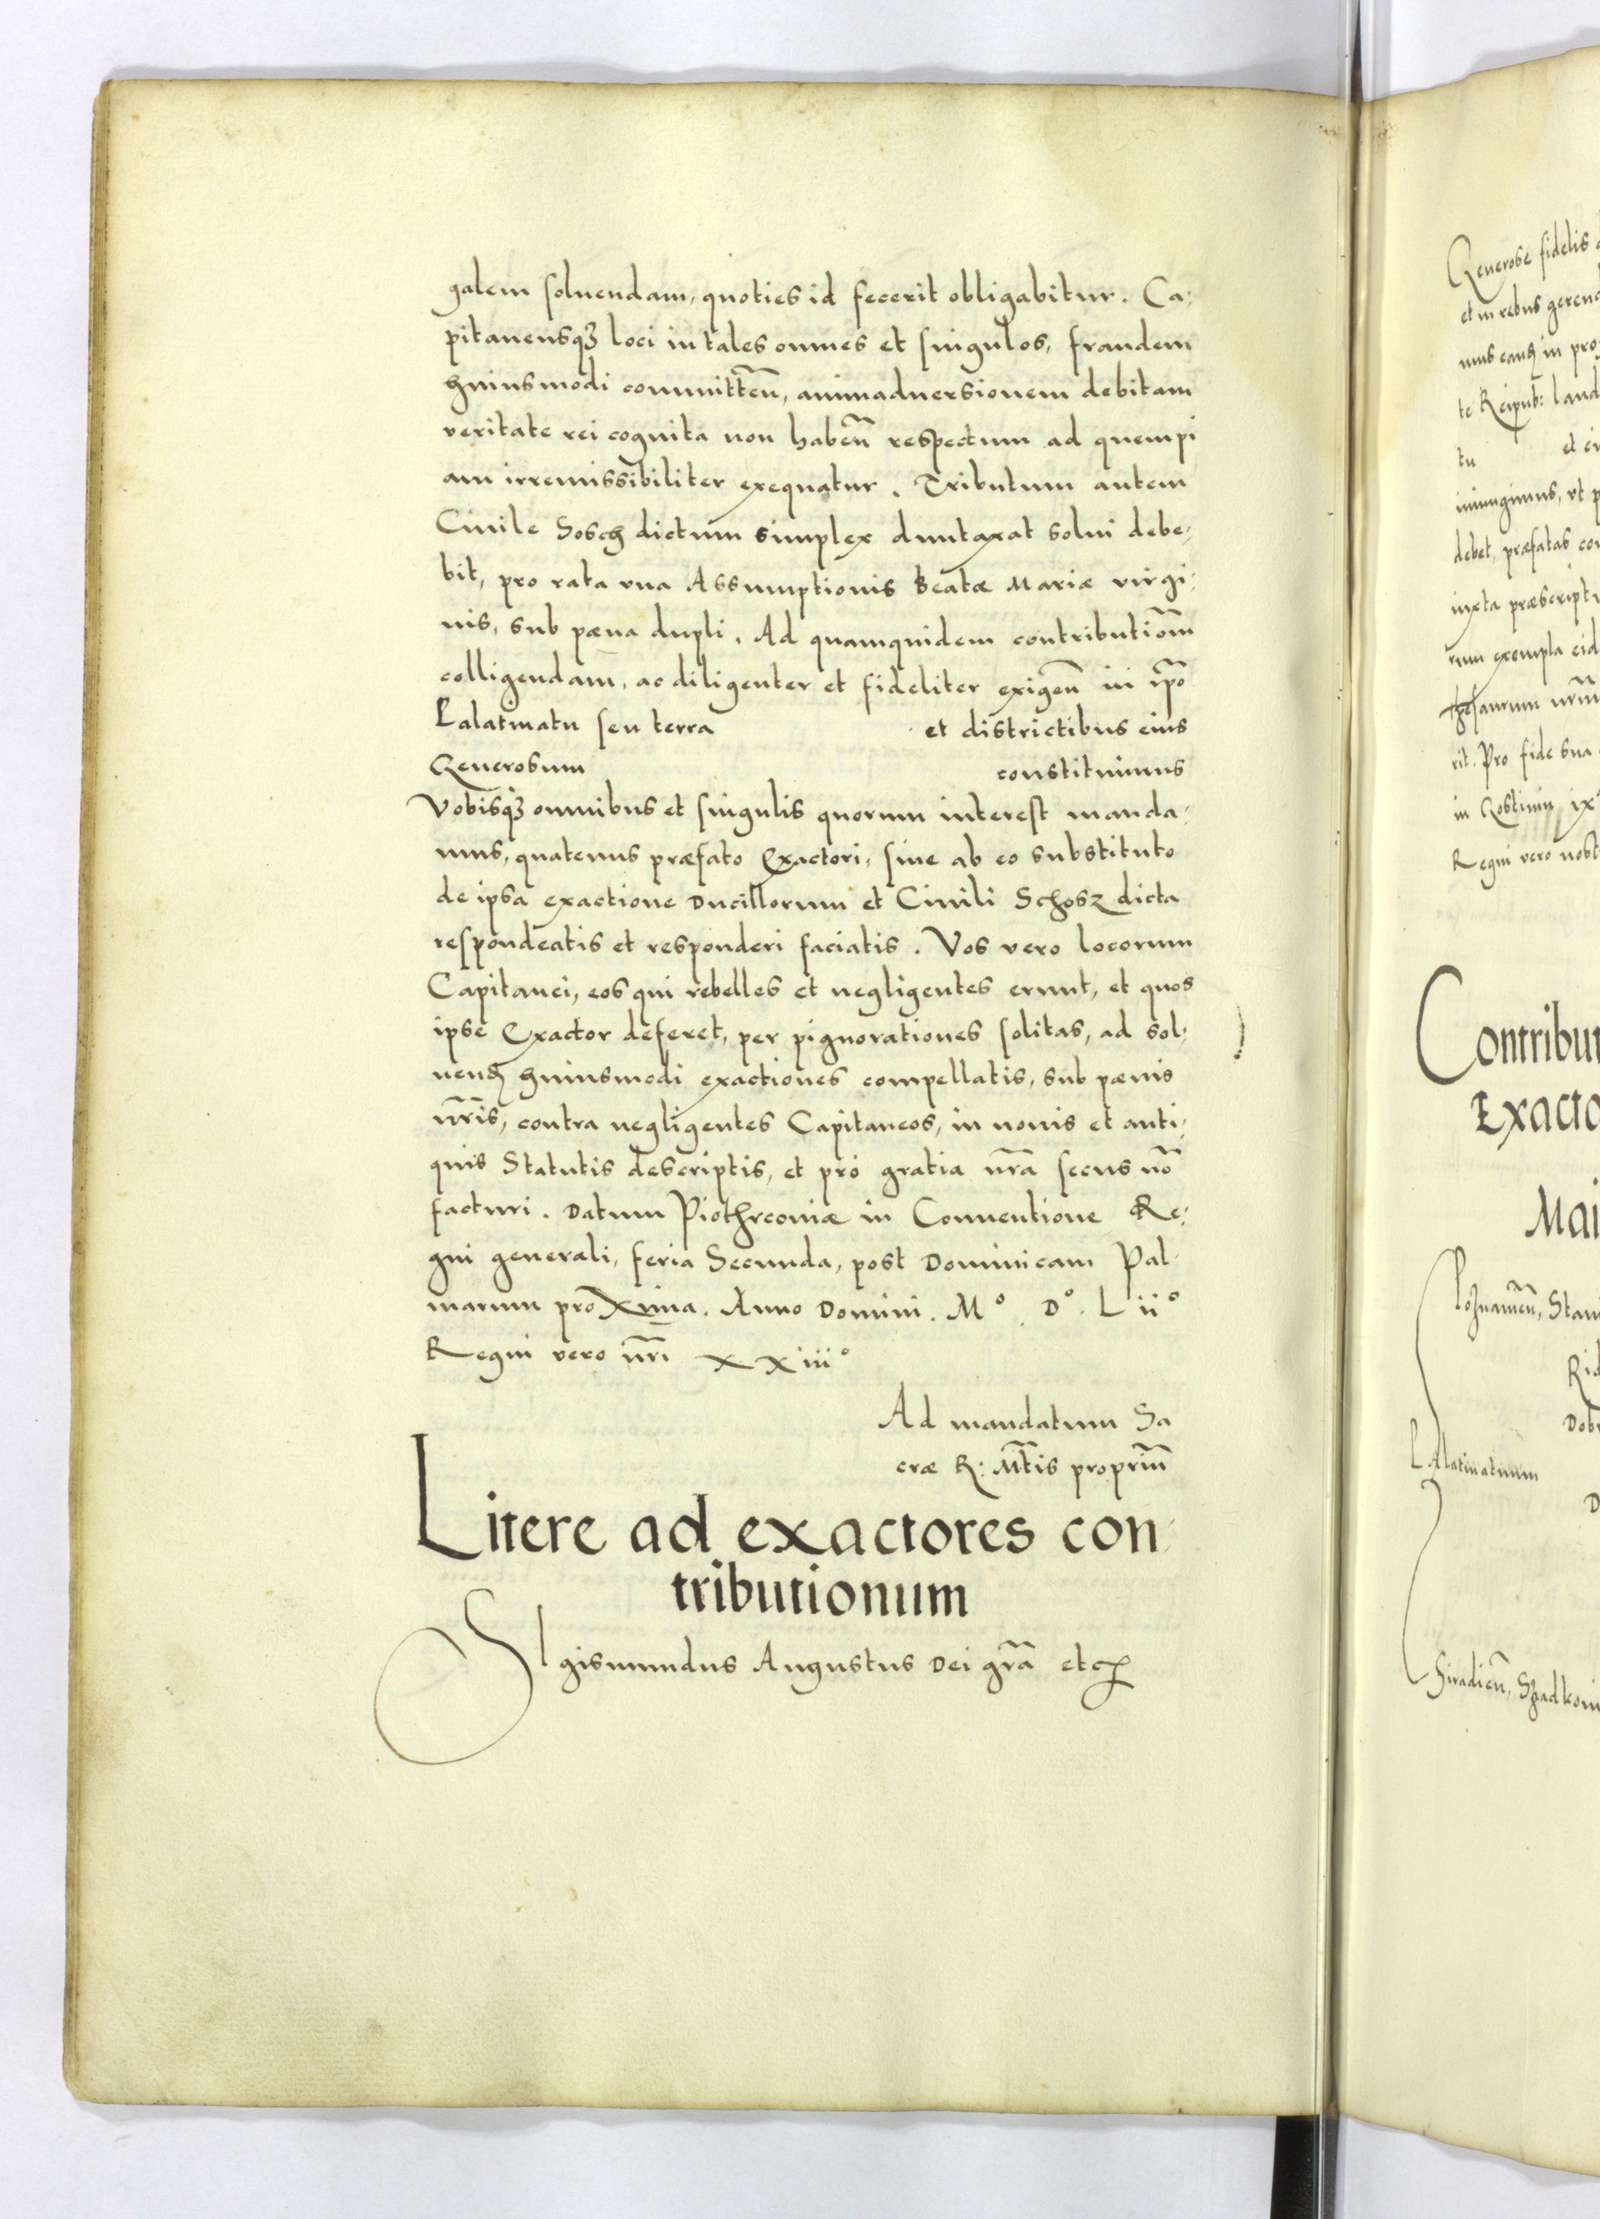 galem soluendam, quoties id fecerit obligabitur. Ca,
pitaneusqꝫ loci in tales omnes et singulos, fraudem
huiusmodi committeñ, animaduersionem debitam
veritate rei cognita non habeñ respectum ad quempi
am irremissibiliter exequatur. Tributum autem
Ciuile Sosch dictum simplex duntaxat solui debe,
bit, pro rata vna Assumptionis Beatæ Mariæ virgi,
nis, sub pæna dupli. Ad quamquidem contributiõm
colligendam, ac diligenter et fideliter exigeñ in ip̃o
Palatinatu seu terra et districtibus eius
Generosum constituimus
Vobisqꝫ omnibus et singulis quorum interest manda,
mus, quatenus præfato Exactori, siue ab eo substituto
de ipsa exactione Ducillorum et Ciuili Schosz dicta
respondeatis et responderi faciatis. Vos vero locorum
Capitanei, eos qui rebelles et negligentes erunt, et quos
ipse Exactor deferet, per pignorationes solitas, ad sol,
uenđ huiusmodi exactiones compellatis, sub pænis
nr̃is, contra negligentes Capitaneos, in nouis et anti,
quis Statutis descriptis, et pro gratia nr̃a secus nõ
facturi. Datum Piothrcouiæ in Conuentione Re,
gni generali, feria Secunda, post Dominicam Pal,
marum proXima. Anno Domini. M° D°. L ii°
Regni vero nr̃i XXiii°
Ad mandatum Sa
cræ R: M̃tis propriũ
Litere ad exactores con,
tributionum
SIgismundus Augustus Dei gr̃a etc
Generose fidelis
et in rebus geren
te Reipub: laud
tu et
debet, præfatas con
iuxta præscript
rum exempla eid
thesaurum nr̃m
rit. Pro fide sua
Regni vero nost
Contribu
Exacto
Mai
Poznanieñ, Stan
Palatinatuum
Siradieñ, Szadkoui